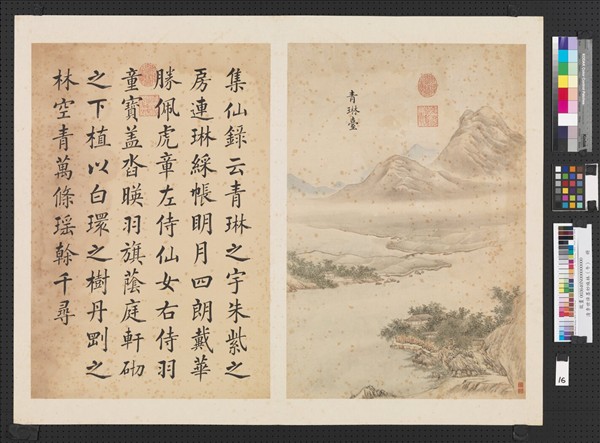 青琳臺
集仙錄云青琳之宇朱紫之
房連琳綵帳明月四朗戴華
勝佩虎章左侍仙女右侍羽
童寶盖沓暎羽旗蔭庭軒砌
之下植以白環之樹丹剛之
林空青萬條瑶榦千尋
16